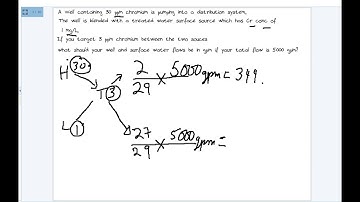 A well containing 30 ppm chromium is pumping into a distribution system,
The well is blended with a treated water surface source which has Cr conc of
1 mg/L.
If you target 3 ppm chromium between the two sources
what should your well and surface water flows be in gpm if your total flow is 5000 gpm?
H 30 2/29 × 5000 gpm = 349.
T 3
L 1 27/29 × 5000 gpm =